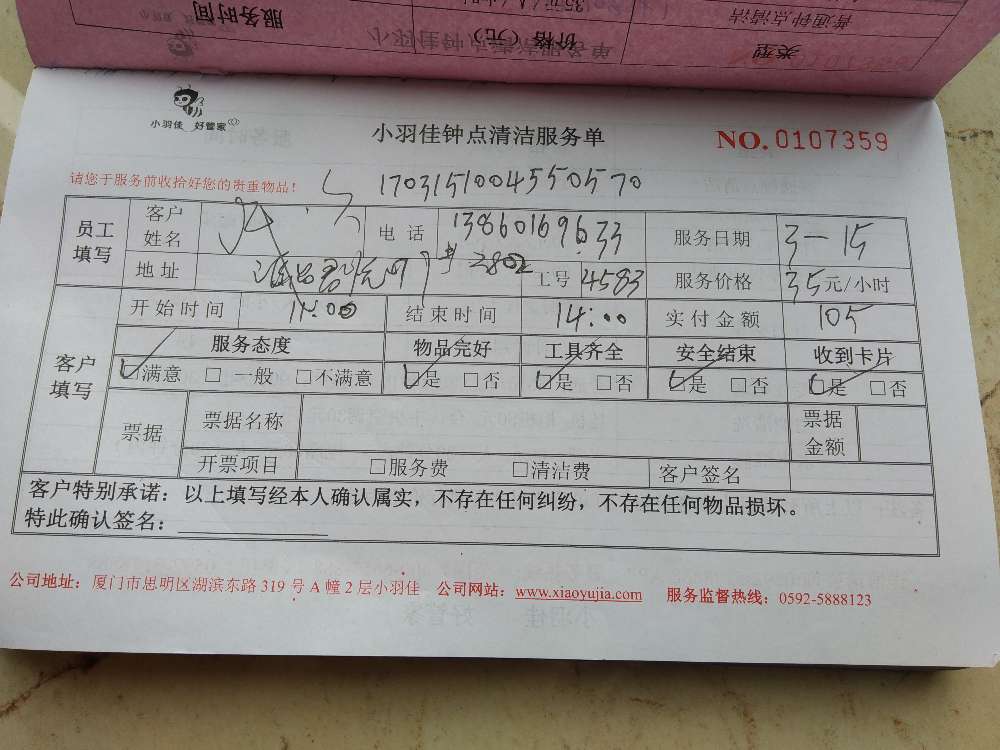 服务时间
价格（元）
类型
35元/人/小时
普通钟点清洁
小羽佳钟点清洁服务单
小羽佳 好管家
小羽佳钟点清洁服务单
NO. 0107359
请您于服务前收拾好您的贵重物品！
17031510045505 70
员工填写 客户姓名 电话 13860169633 服务日期 3-15
地址 2802 工号 4583 服务价格 35元/小时
客户填写 开始时间 11:00 结束时间 14:00 实付金额 105
服务态度 物品完好 工具齐全 安全结束 收到卡片
☑满意 □一般 □不满意 ☑是 □否 ☑是 □否 ☑是 □否 ☑是 □否
票据 票据名称 票据金额
开票项目 □服务费 □清洁费 客户签名
客户特别承诺：以上填写经本人确认属实，不存在任何纠纷，不存在任何物品损坏。
特此确认签名：
公司地址：厦门市思明区湖滨东路 319 号 A 幢 2 层小羽佳 公司网站：www.xiaoyujia.com 服务监督热线：0592-5888123